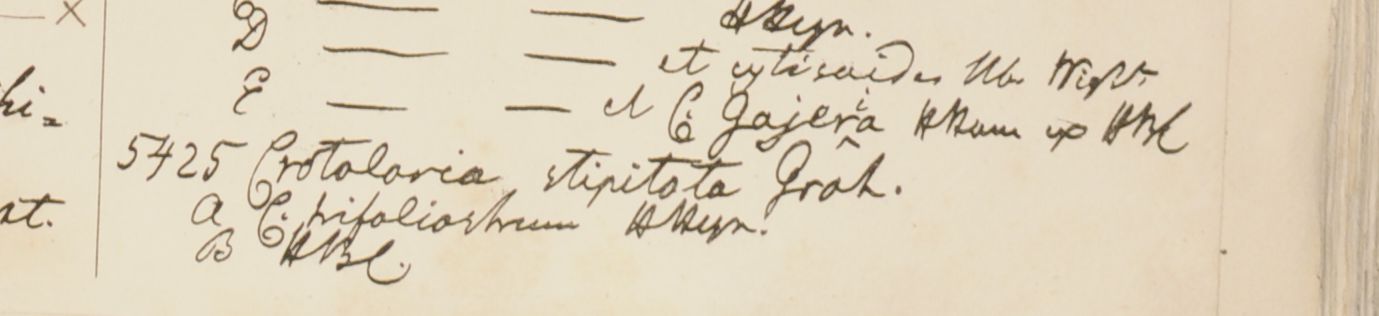 — X
D — — HHeyn.
E — — et cytisoides Hb. Wight
— — et C. Gajera HHam ex HBC
hi=
5425 Crotolaria stipitata Grah.
at.
a C. trifoliastrum HHeyn.
B HBC.